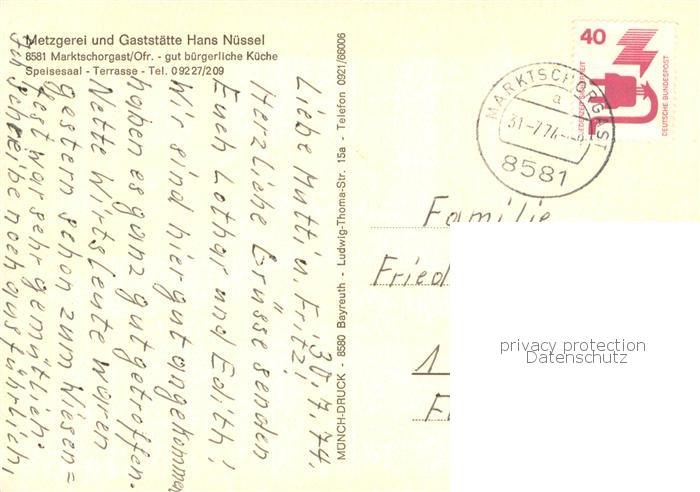 Metzgerei und Gaststätte Hans Nüssel
8581 Marktschorgast/Ofr. - gut bürgerliche Küche
Speisesaal - Terrasse - Tel. 09227/209
30.7.74.
Liebe Mutti u. Fritz!
Herzliche Grüsse senden
Euch Lothar und Edith!
Wir sind hier gut angekommen
haben es ganz gut getroffen.
Nette Wirtsleute waren
gestern schon zum Wiesen=
fest war sehr gemütlich.
Ich schreibe noch ausführlich,
MÜNCH-DRUCK - 8580 Bayreuth - Ludwig-Thoma-Str. 15a - Telefon 0921/66006
40
DEUTSCHE BUNDESPOST
MARKTSCHORGAST
a
31.-7.74.
8581
Familie
Fried
1
F
privacy protection
Datenschutz